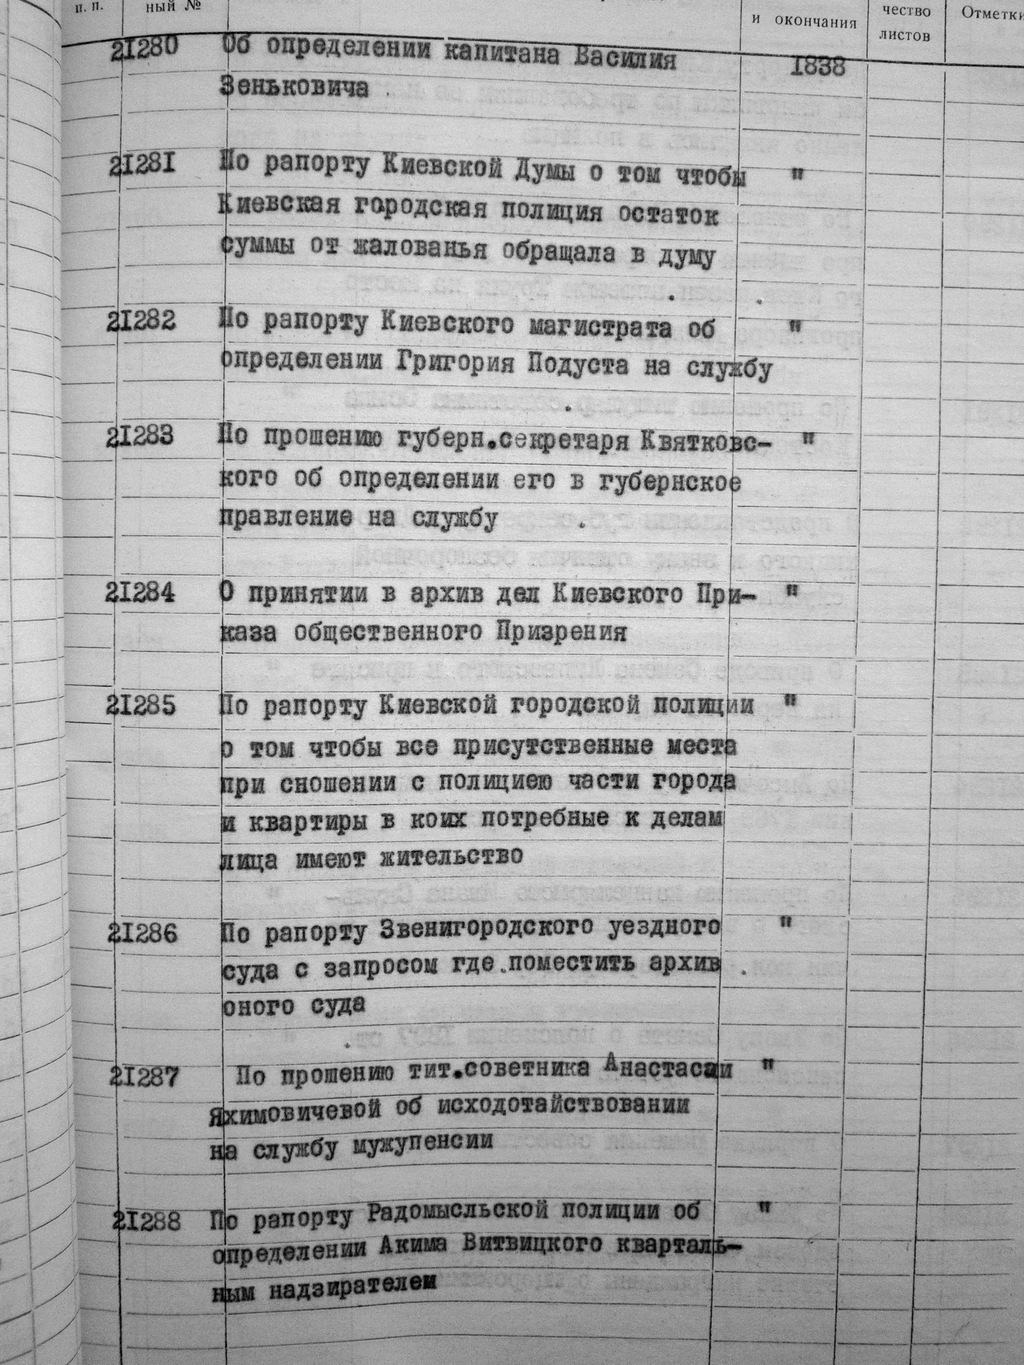 п. п.
ный №
и окончания
чество
листов
Отметки
21280 Об определении капитана Василия 1838
Зеньковича
21281 По рапорту Киевской Думы о том чтобы "
Киевская городская полиция остаток
суммы от жалованья обращала в думу
21282 По рапорту Киевского магистрата об "
определении Григория Подуста на службу
21283 По прошению губерн.секретаря Квятковс- "
кого об определении его в губернское
правление на службу
21284 О принятии в архив дел Киевского При- "
каза общественного Призрения
21285 По рапорту Киевской городской полиции "
о том чтобы все присутственные места
при сношении с полициею части города
и квартиры в коих потребные к делам
лица имеют жительство
21286 По рапорту Звенигородского уездного "
суда с запросом где поместить архив
оного суда
21287 По прошению тит.советника Анастасии "
Яхимовичевой об исходотайствовании
на службу мужупенсии
21288 По рапорту Радомысльской полиции об "
определении Акима Витвицкого кварталь-
ным надзирателем